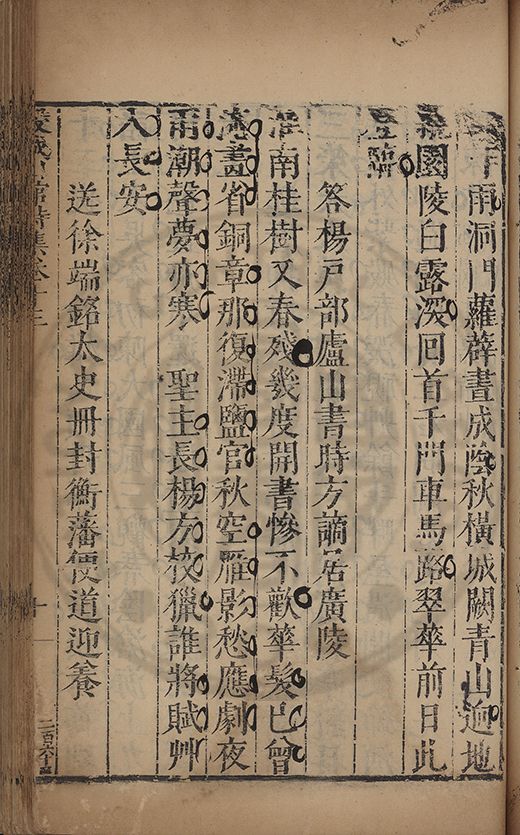 下雨洞門蘿薜晝成陰秋橫城闕青山逈地
園陵白露深回首千門車馬路翠華前日此
登臨
答楊戶部廬山書時方謫居廣陵
淮南桂樹又春殘幾度開書慘不歡華髮已曾
盡省銅章那復滯鹽官秋空雁影愁應劇夜
雨潮聲夢亦寒　聖主長楊方校獵誰將賦艸
入長安
送徐端銘太史冊封衡藩便道迎養
十
二百六十